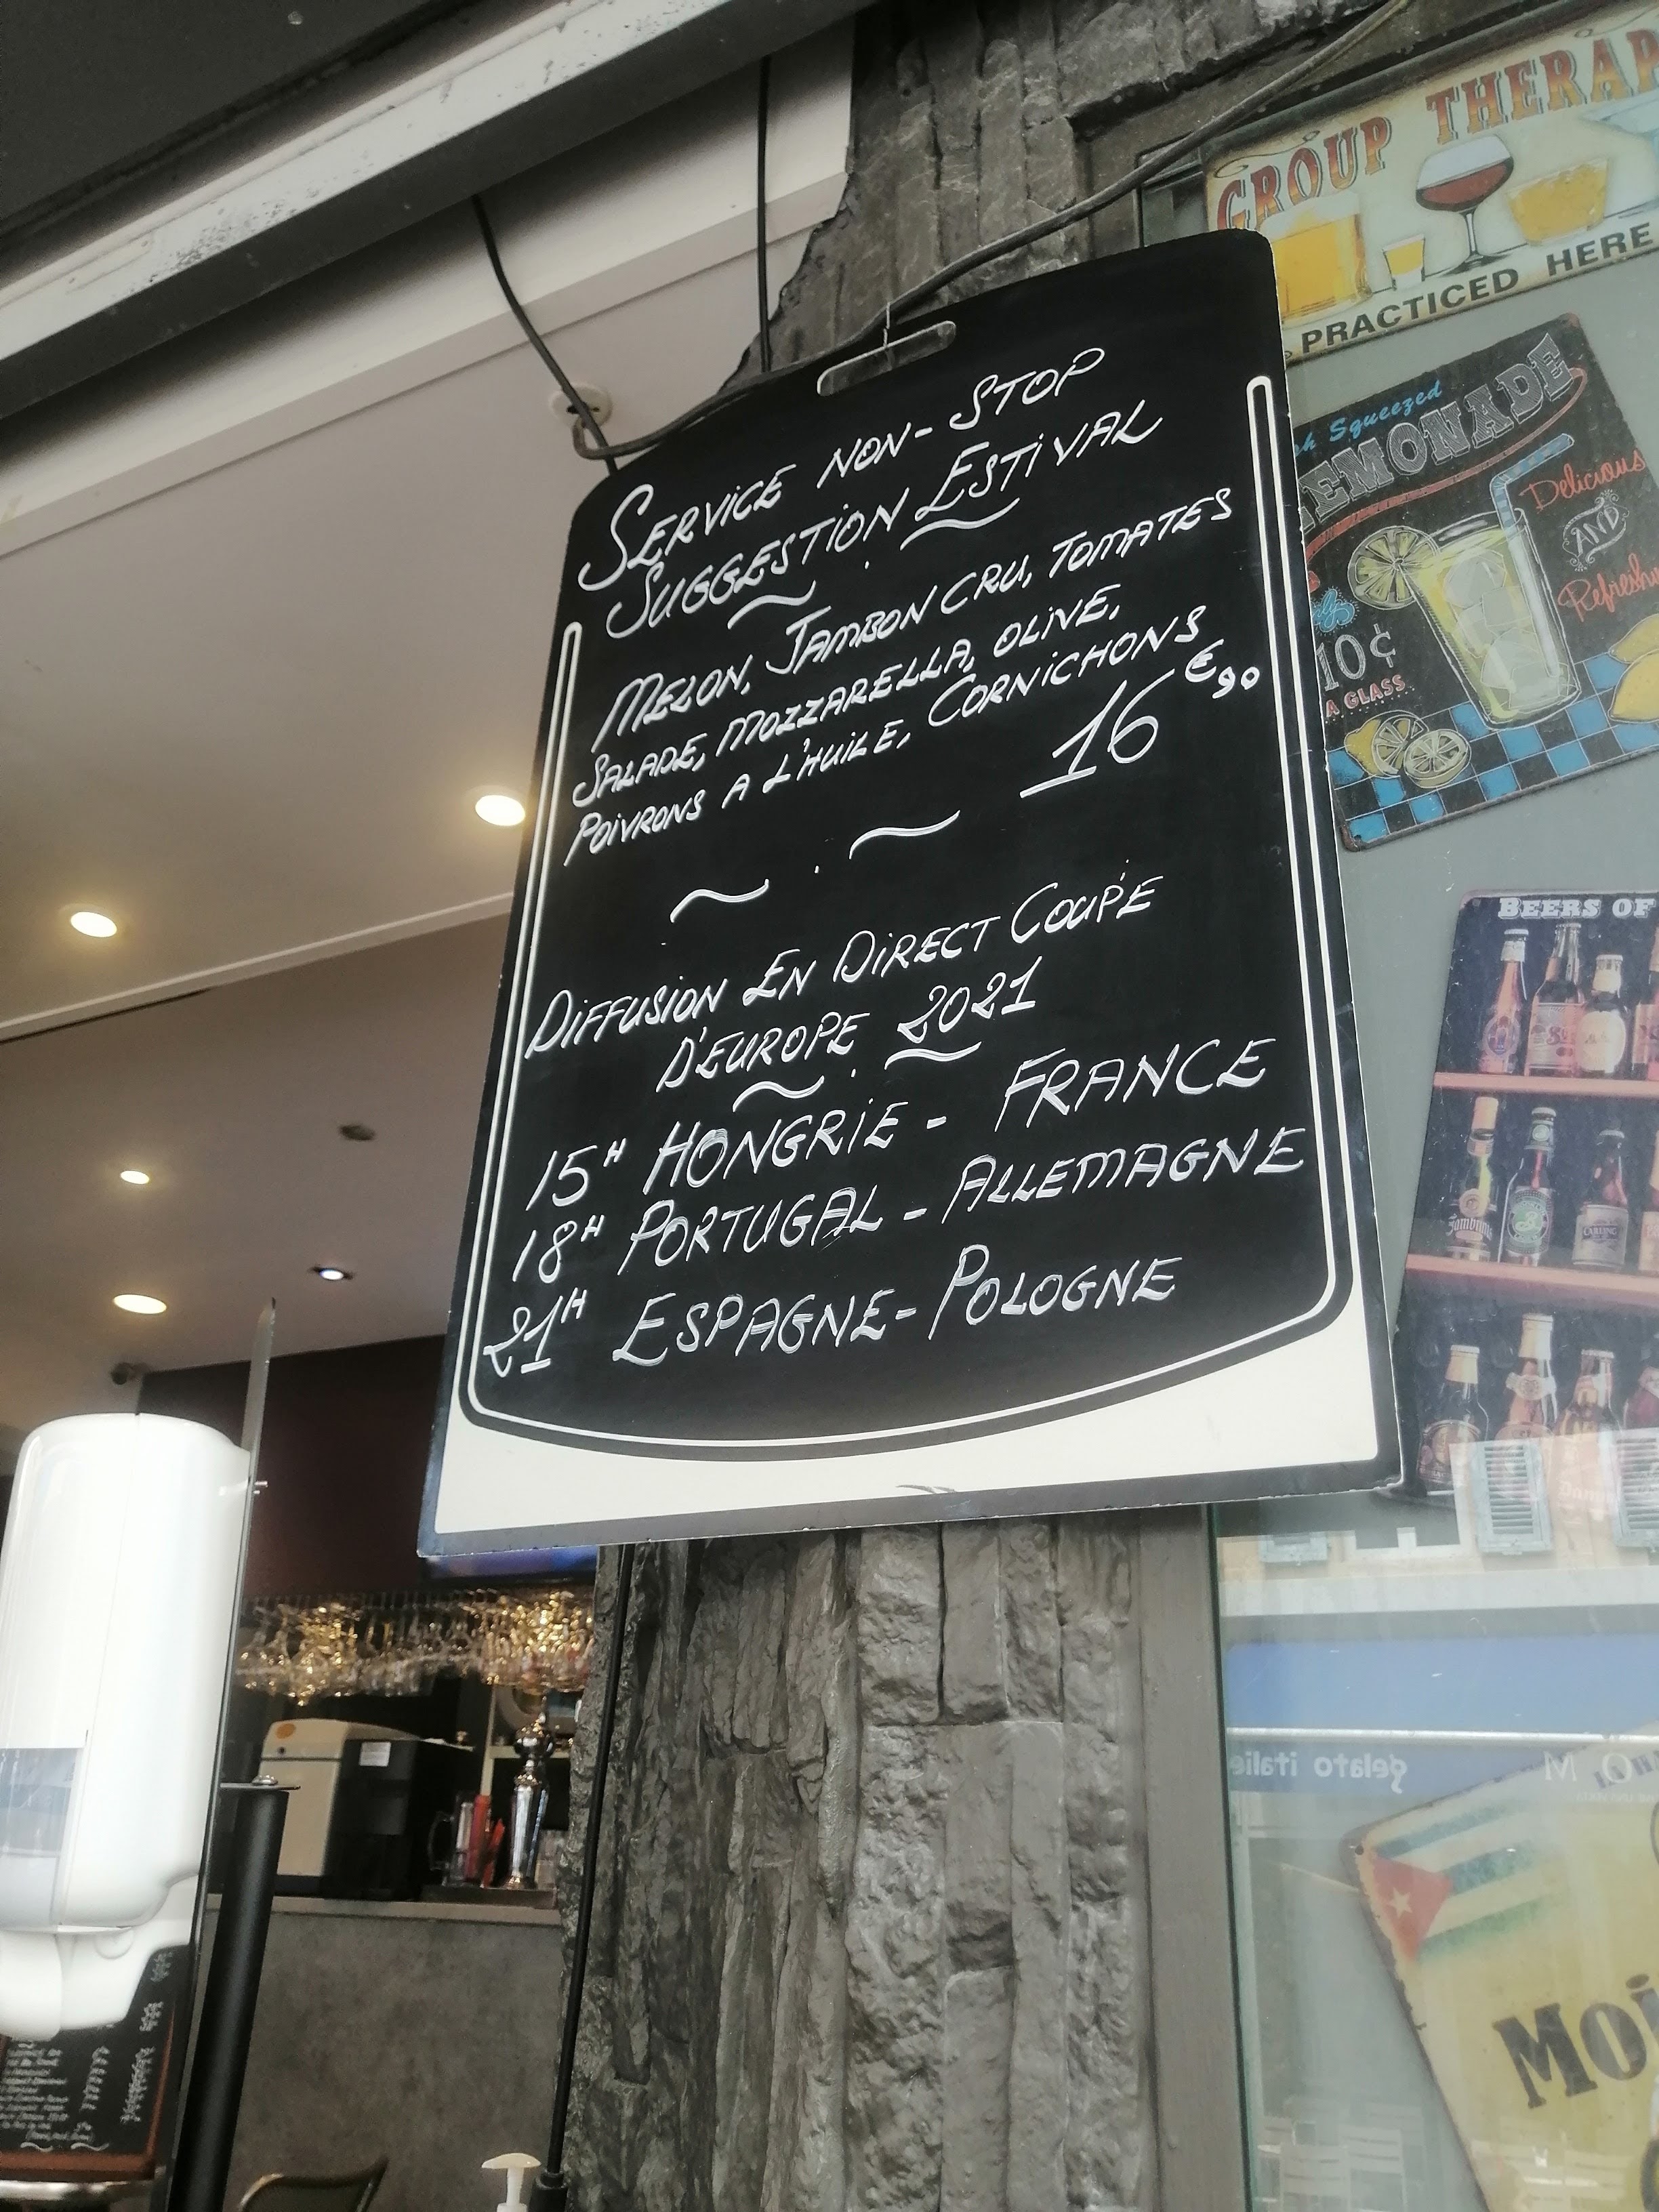 SERVICE NON-STOP
SUGGESTION ESTIVAL
MELON, JAMBON CRU, TOMATES
SALADE, MOZZARELLA, OLIVE,
POIVRONS A L'HUILE, CORNICHONS
16€90
DIFFUSION EN DIRECT COUPE
D'EUROPE 2021
15H HONGRIE - FRANCE
18H PORTUGAL - ALLEMAGNE
21H ESPAGNE - POLOGNE
GROUP THERAP
PRACTICED HERE
sh Squeezed
LEMONADE
Delicious
AND
Refreshi
10¢
A GLASS
BEERS OF
gelato italie
MOJ